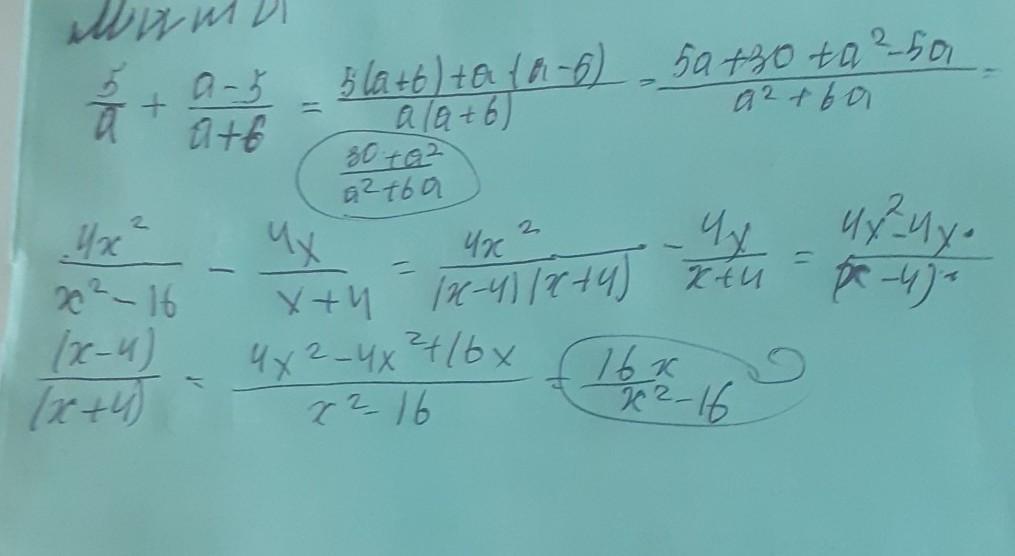 5/a + a-5/a+6 = 5(a+6)+a·(a-5)/a(a+6) = 5a+30+a²-5a/a²+6a =
30+a²/a²+6a
4x²/x²-16 - 4x/x+4 = 4x²/(x-4)(x+4) - 4x/x+4 = 4x²-4x·/(x-4)·
(x-4)/(x+4) = 4x²-4x²+16x/x²-16 = 16x/x²-16